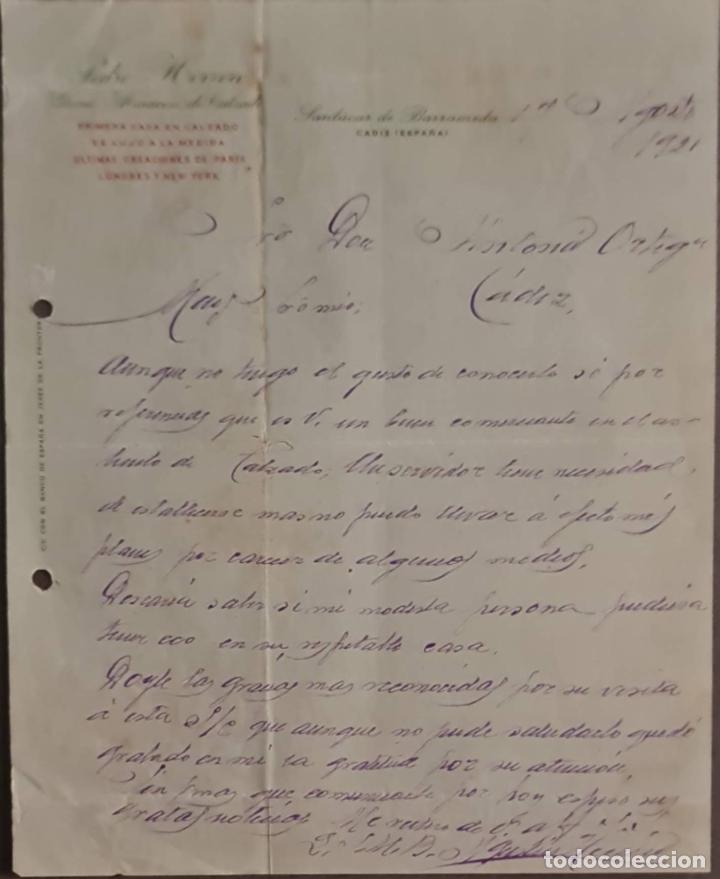 Pedro
Gran Almacen de Calzado
PRIMERA CASA EN CALZADO
DE LUJO A LA MEDIDA
ULTIMAS CREACIONES DE PARIS
LONDRES Y NEW YORK
Sanlúcar de Barrameda 1º Agosto
CADIZ (ESPAÑA)
1921
Sr Don Antonio Ortega
Cádiz,
Muy Sr mio;
Aunque no tengo el gusto de conocerlo sé por
referencias que es V. un buen comerciante en el
de Calzado, Un servidor tiene necesidad
de establecerse mas no puedo llevar á efecto mis
planes por carecer de algunos medios,
Desearía saber si mi modesta persona pudiera
tener eco en su respetable casa.
Doyle las gracias mas reconocidas por su visita
á esta S/c que aunque no pude saludarlo quedó
grabado en mi la gratitud por su atención,
Sin mas que comunicarle por hoy espero sus
gratas noticias
C/C CON EL BANCO DE ESPAÑA EN JEREZ DE LA FRONTERA
todocoleccion